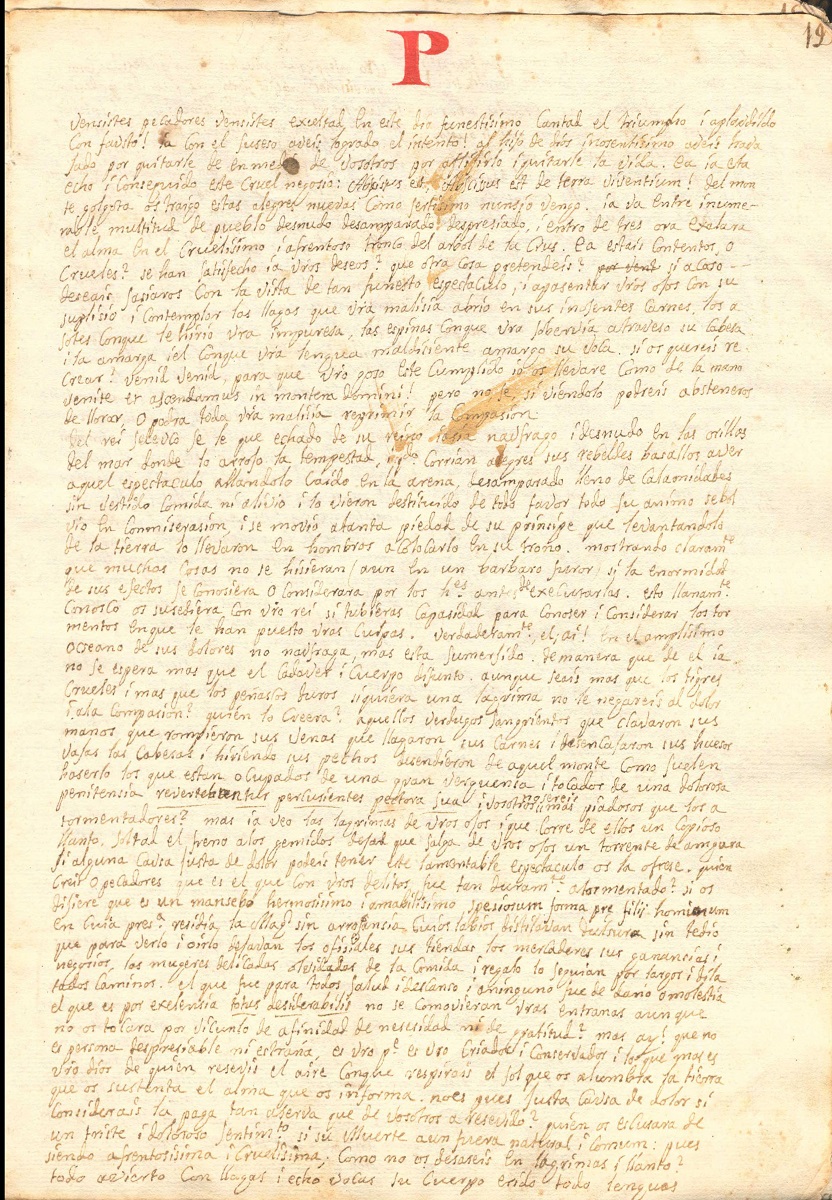 19
P
Vensistes pecadores vensistes exultad En este dio funestisimo Cantad el triumpho i aplaudildo
Con fausto! ia Con el suseso aveis logrado el intento! al hijo de dios inosentisimo aveis trata
sado por quitarle de en medio de vosotros por afligirlo i quitarle la vida. Ea ia esta
echo i Conseguido este Cruel negosio: est de terra viventium! del mon
te golgota os traigo estas alegres nuevas Como sertisimo nunsio vengo. ia va entre inume-
rable multitud de pueblo desnudo desamparado despresiado, i entro de tres ora exalara
el alma En el Cruelisimo i afrentoso tronco del arbol de la Crus. Ea estais Contentos, o
Crueles? se han satisfecho ia vros deseos? que otra Cosa pretendeis? si acaso
deseais sasiaros Con la vista de tan funesto espectaculo, i apasentar vros ojos con su
suplisio i Contemplar las llagas que vra malisia abrio en sus inosentes Carnes, los a
sotes Conque le hirio vra impuresa, las espinas Conque vra sobervia atraveso su Cabesa
i la amarga iel Conque vra lengua maldisiente amargo su voca. si os quereis re-
Crear? Venid Venid, para que vro goso Este Cumplido io os llevare Como de la mano
venite et ascendamus in montem domini! pero no se, si viendolo podreis absteneros
de llorar, O podra toda vra malisia reprimir la Compasion
Del rei seleuco se le que echado de su reino iasia naufrago i desnudo en las orillas
del mar donde lo arrojo la tempestad, Corrian alegres sus rebeldes basallos a ver
aquel espectaculo allandolo Caido En la arena, desamparado lleno de Calamidades
sin vestido Comida ni alivio i lo vieron destituido de todo favor todo su animo se bol
vio En Commiserasion, i se movio a tanta piedad de su prinsipe que levantandolo
de la tierra lo llevaron En hombros a Colocarlo En su trono. mostrando claramte
que muchas Cosas no se hisieran (aun En un barbaro furor) si la enormidad
de sus efectos se Conosiera O Considerara por los hes antes de executarlas. esto llanamte
Conosco os susediera Con vro rei si tubieras Capasidad para Conoser i Considerar los tor
mentos En que le han puesto vras Culpas. verdaderamte el, ai! En el amplisimo
Oceano de sus dolores no naufraga, mas esta sumersido. de manera que de el ia
no se espera mas que el Cadaver i Cuerpo difunto. aunque seais mas que los tigres
Crueles i mas que los peñascos duros siquiera una lagrima no le negareis al dolor
i a la Compasion? quien lo Creera? Aquellos verdugos sangrientos que clavaron sus
manos que rompieron sus venas que llagaron sus Carnes i desencajaron sus huesos
vajas las Cabesas i hiriendo sus pechos desendieron de aquel monte Como suelen
haserlo los que estan ocupados de una gran verguensa i tocados de una dolorosa
penitensia revertebantur percusientes pectora sua i vosotros no sereis mas piadosos que los a
tormentadores? mas ia veo las lagrimas de vros ojos i que Corre de ellos un Copioso
llanto. soltad el freno a los gemidos dejad que salga de vros ojos un torrente de amargura
si alguna Causa justa de dolor podeis tener este lamentable espectaculo os la ofrese. quien
Creis O pecadores que es el que Con vros delitos fue tan duramte atormentado? si os
dijere que es un mansebo hermosisimo i amabilisimo spesiosum forma pre filij hominum
En Cuia presa residia la Magd sin arrogansia Cuios labios distilavan dulsura sin tedio
que para verlo i oirlo dejavan los ofisiales sus tiendas los mercaderes sus ganancias i
negosios, las mugeres delicadas olvidadas de la Comida i regalo lo seguian por largos i dila
tados Caminos. el que fue para todos salud i descanso i a ninguno fue de daño o molestia
el que es por exelensia totus desiderabilis no se Comovieran vras entrañas aunque
no os tocara por vinculo de afinidad de nesesidad ni de gratitud? mas ay! que no
es persona despresiable ni estraña, es vro pe es vro Criador i Conservador i lo que mas es
vro dios de quien resevis el aire Conque respirais el sol que os alumbra la tierra
que os sustenta el alma que os informa. no es pues justa Causa de dolor si
Considerais la paga tan aserva que de vosotros a resevido? quien os escusara de
un triste i doloroso sentimto si su Muerte aun fuera natural, i Comum: pues
siendo afrentosisima i Cruelisima, Como no os desaseis En lagrimas i llanto?
todo avierto Con llagas i echo vocas su Cuerpo erido todo lenguas